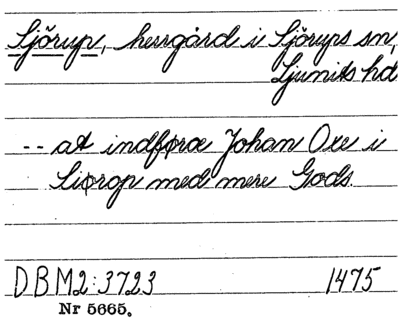 Sjörup, herrgård i Sjörups sn,
Ljunits hd
-- at indføræ Johan Oxe i
Siørop med mere Gods.
DBM2:3723 1475
Nr 5665.